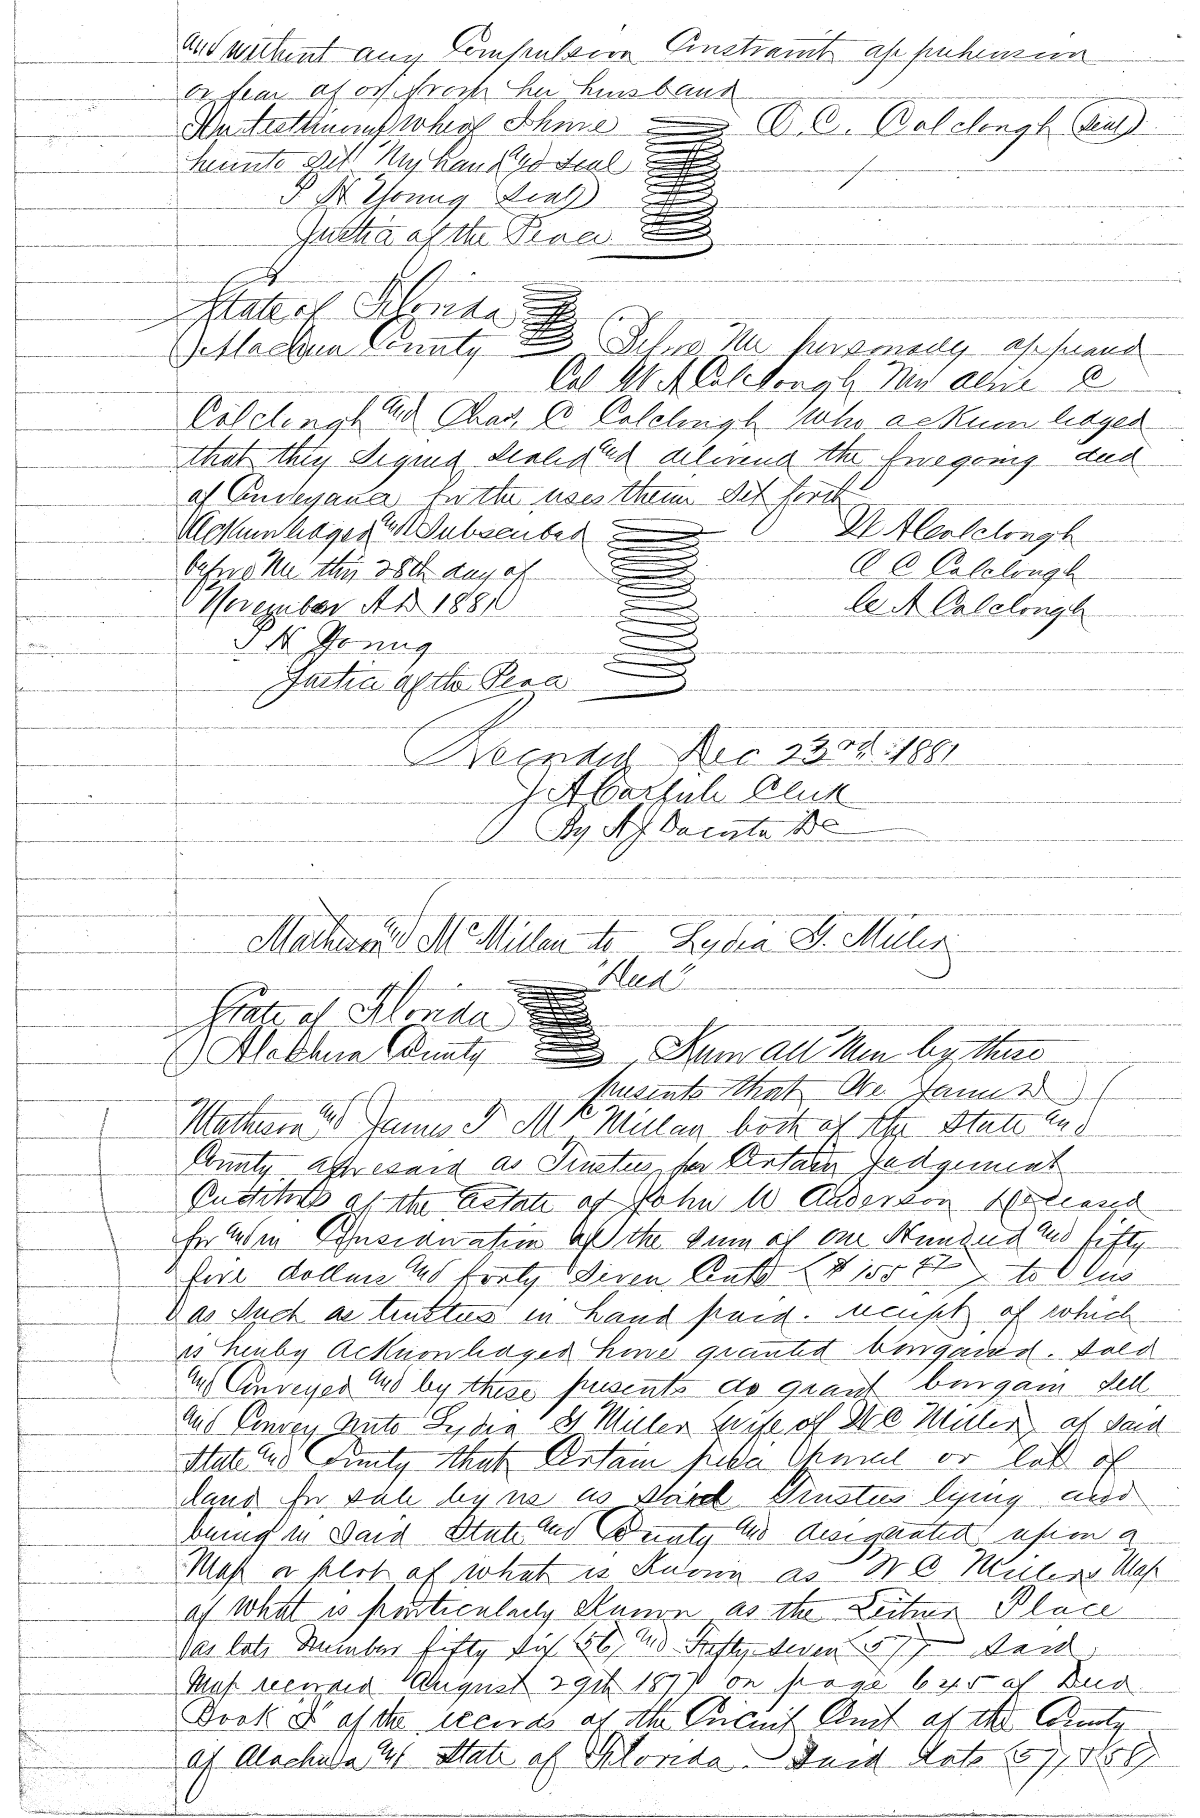 and without any Compulsion Constraint apprehension
or fear of or from her husband
In testimony whereof I have A. C. Colclough (seal)
hereunto set My hand and seal
P H Young (seal)
Justice of the Peace
State of Florida
Alachua County Before Me personally appeared
Col W A Colclough Mrs Alice C
Colclough and Chas. C Colclough who acknowledged
that they signed sealed and delivered the foregoing deed
of Conveyance for the uses therein set forth
Acknowledged and Subscribed W A Colclough
before Me this 28th day of A C Colclough
November A D 1881 C A Colclough
P H Young
Justice of the Peace
Recorded Dec 23rd 1881
J A Carlisle Clerk
By A J Dacosta DC
Matheson and McMillan to Lydia G. Miller
"Deed"
State of Florida
Alachua County Know all Men by these
presents that We James D
Matheson and James F McMillan both of the State and
County aforesaid as Trustees for Certain Judgement
Creditors of the Estate of John W Anderson deceased
for and in Consideration of the sum of one Hundred and fifty
five dollars and forty Seven Cents ($155 47) to us
as such as trustees in hand paid. receipt of which
is hereby Acknowledged have granted bargained. sold
and Conveyed and by these presents do grant bargain sell
and Convey unto Lydia G Miller wife of W C Miller of said
State and County that Certain piece parcel or lot of
land for sale by us as said Trustees lying and
being in Said State and County and designated upon a
Map or plot of what is Known as W C Millers Map
of what is particularly Known as the Leitner Place
as lots Number fifty six (56) and Fifty seven (57) said
Map recorded August 29th 1877 on page 645 of Deed
Book of the records of the Circuit Court of the County
of Alachua and State of Florida. Said Lots (57, & 58)